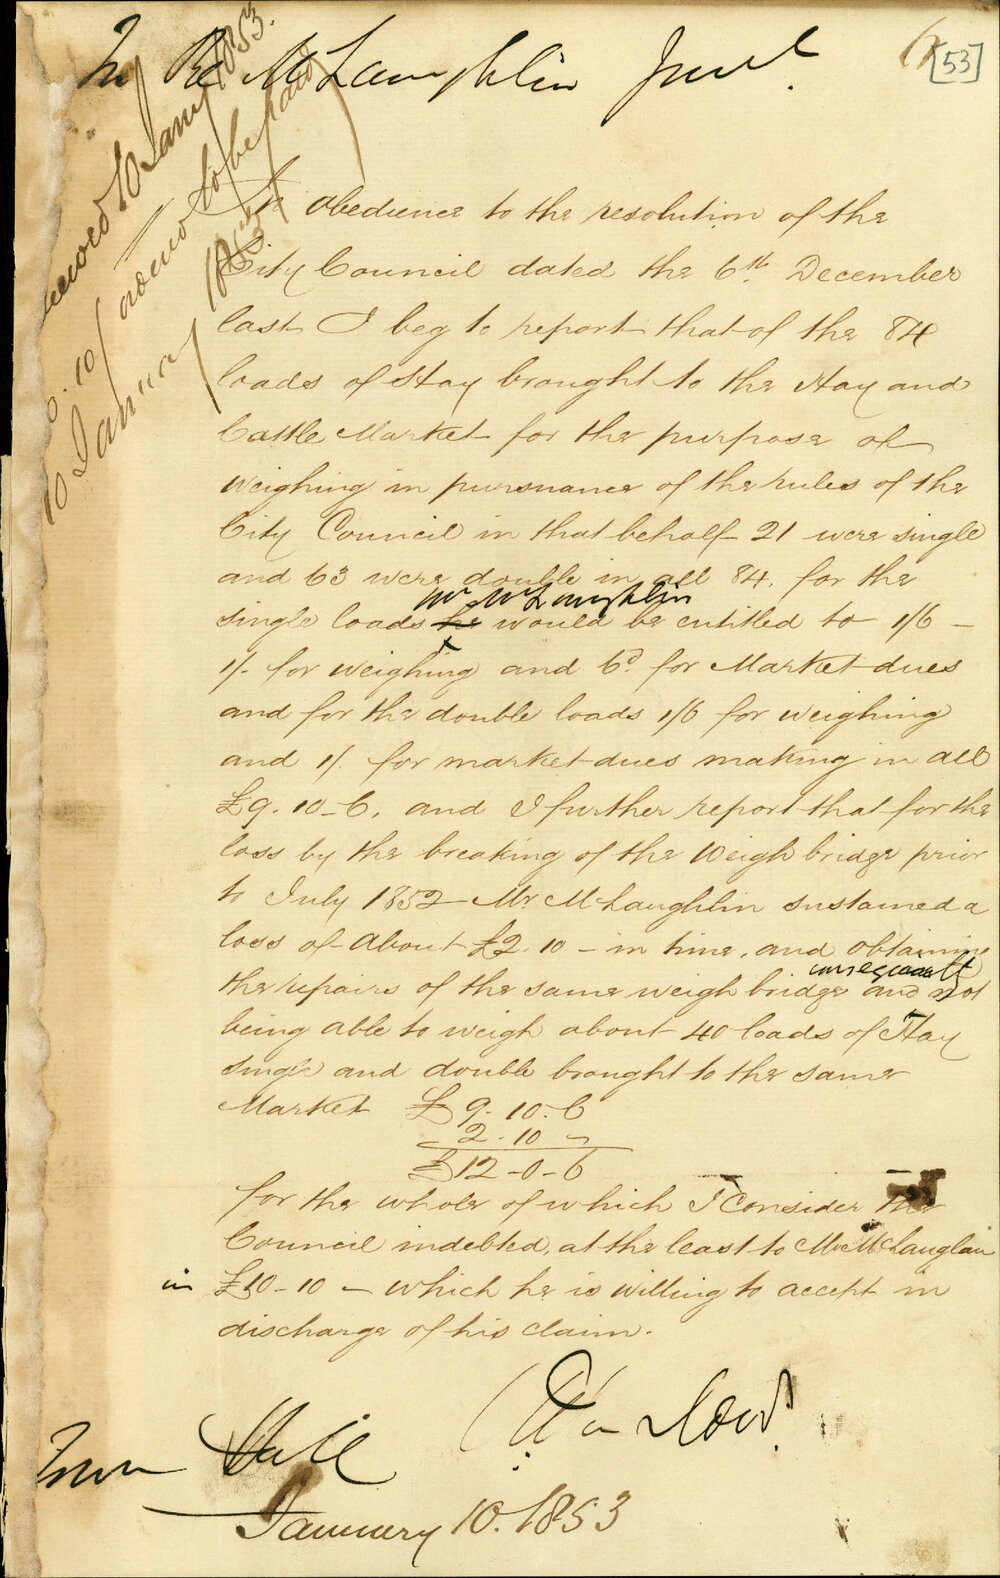 In Re McLaughlin Junr.
[53]
10 January 1853.
£10.10/ to be paid
10 January 1853
In obedience to the resolution of the
City Council dated the 6th December
last I beg to report that of the 84
loads of Hay brought to the Hay and
Cattle Market for the purpose of
weighing in pursuance of the rules of the
City Council in that behalf 21 were single
and 63 were double in all 84. for the
Mr McLaughlin
single loads he would be entitled to 1/6 -
1/. for weighing and 6d for Market dues
and for the double loads 1/6 for weighing
and 1/. for market dues making in all
£9. 10-6. and I further report that for the
loss by the breaking of the Weigh bridge prior
to July 1852 Mr McLaughlin sustained a
loss of about £2.10 - in time, and obtaining
the repairs of the same weigh bridge and not
being able to weigh about 40 loads of Hay
single and double brought to the same
Market £9.10.6
2.10 -
£12-0-6
for the whole of which I consider the
Council indebted, at the least to Mr McLaughlin
in £10-10 - which he is willing to accept in
discharge of his claim.
Town Hall
January 10. 1853